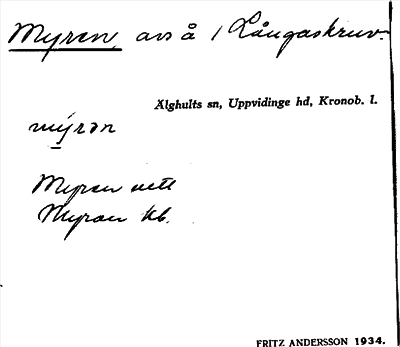 Myren, avs å / Långaskruv.
Älghults sn, Uppvidinge hd, Kronob. l.
mýrən
Myren
Myran kb.
FRITZ ANDERSSON 1934.